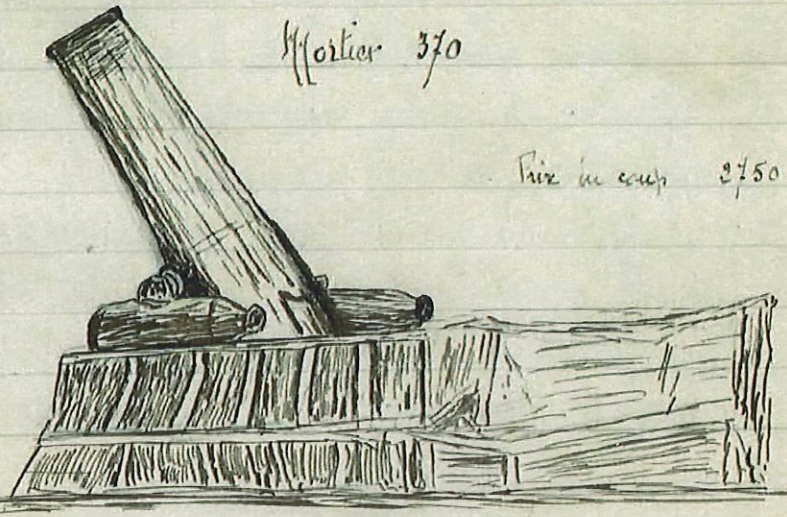 Mortier 370
Prix du coup 2750